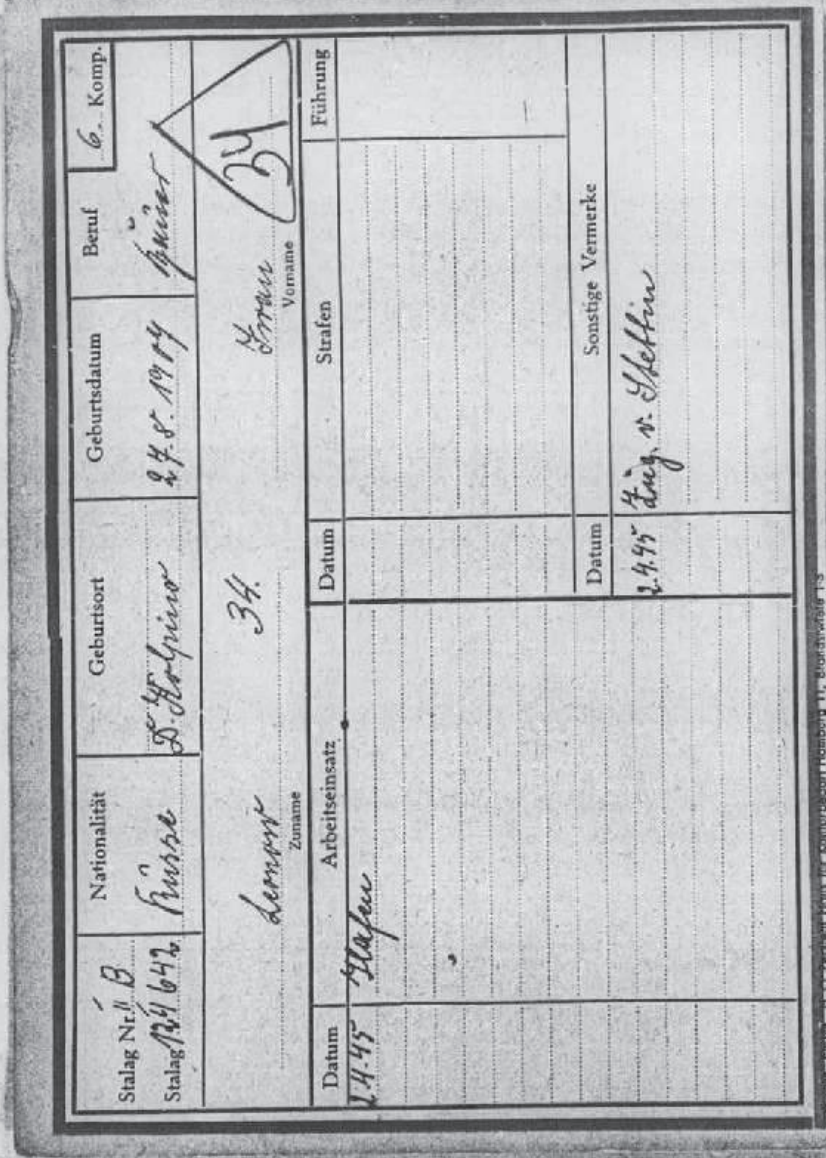 Stalag Nr. II B
Stalag 124 642
Nationalität
Russe
Geburtsort
D. Kolpino
Geburtsdatum
27.8.1904
Beruf
6. Komp.
34
Leonow 34. Iwan
Zuname Vorname
Datum Arbeitseinsatz Datum Strafen Führung
2.4.45 Hafen
Datum Sonstige Vermerke
2.4.45 Zug. v. Stettin